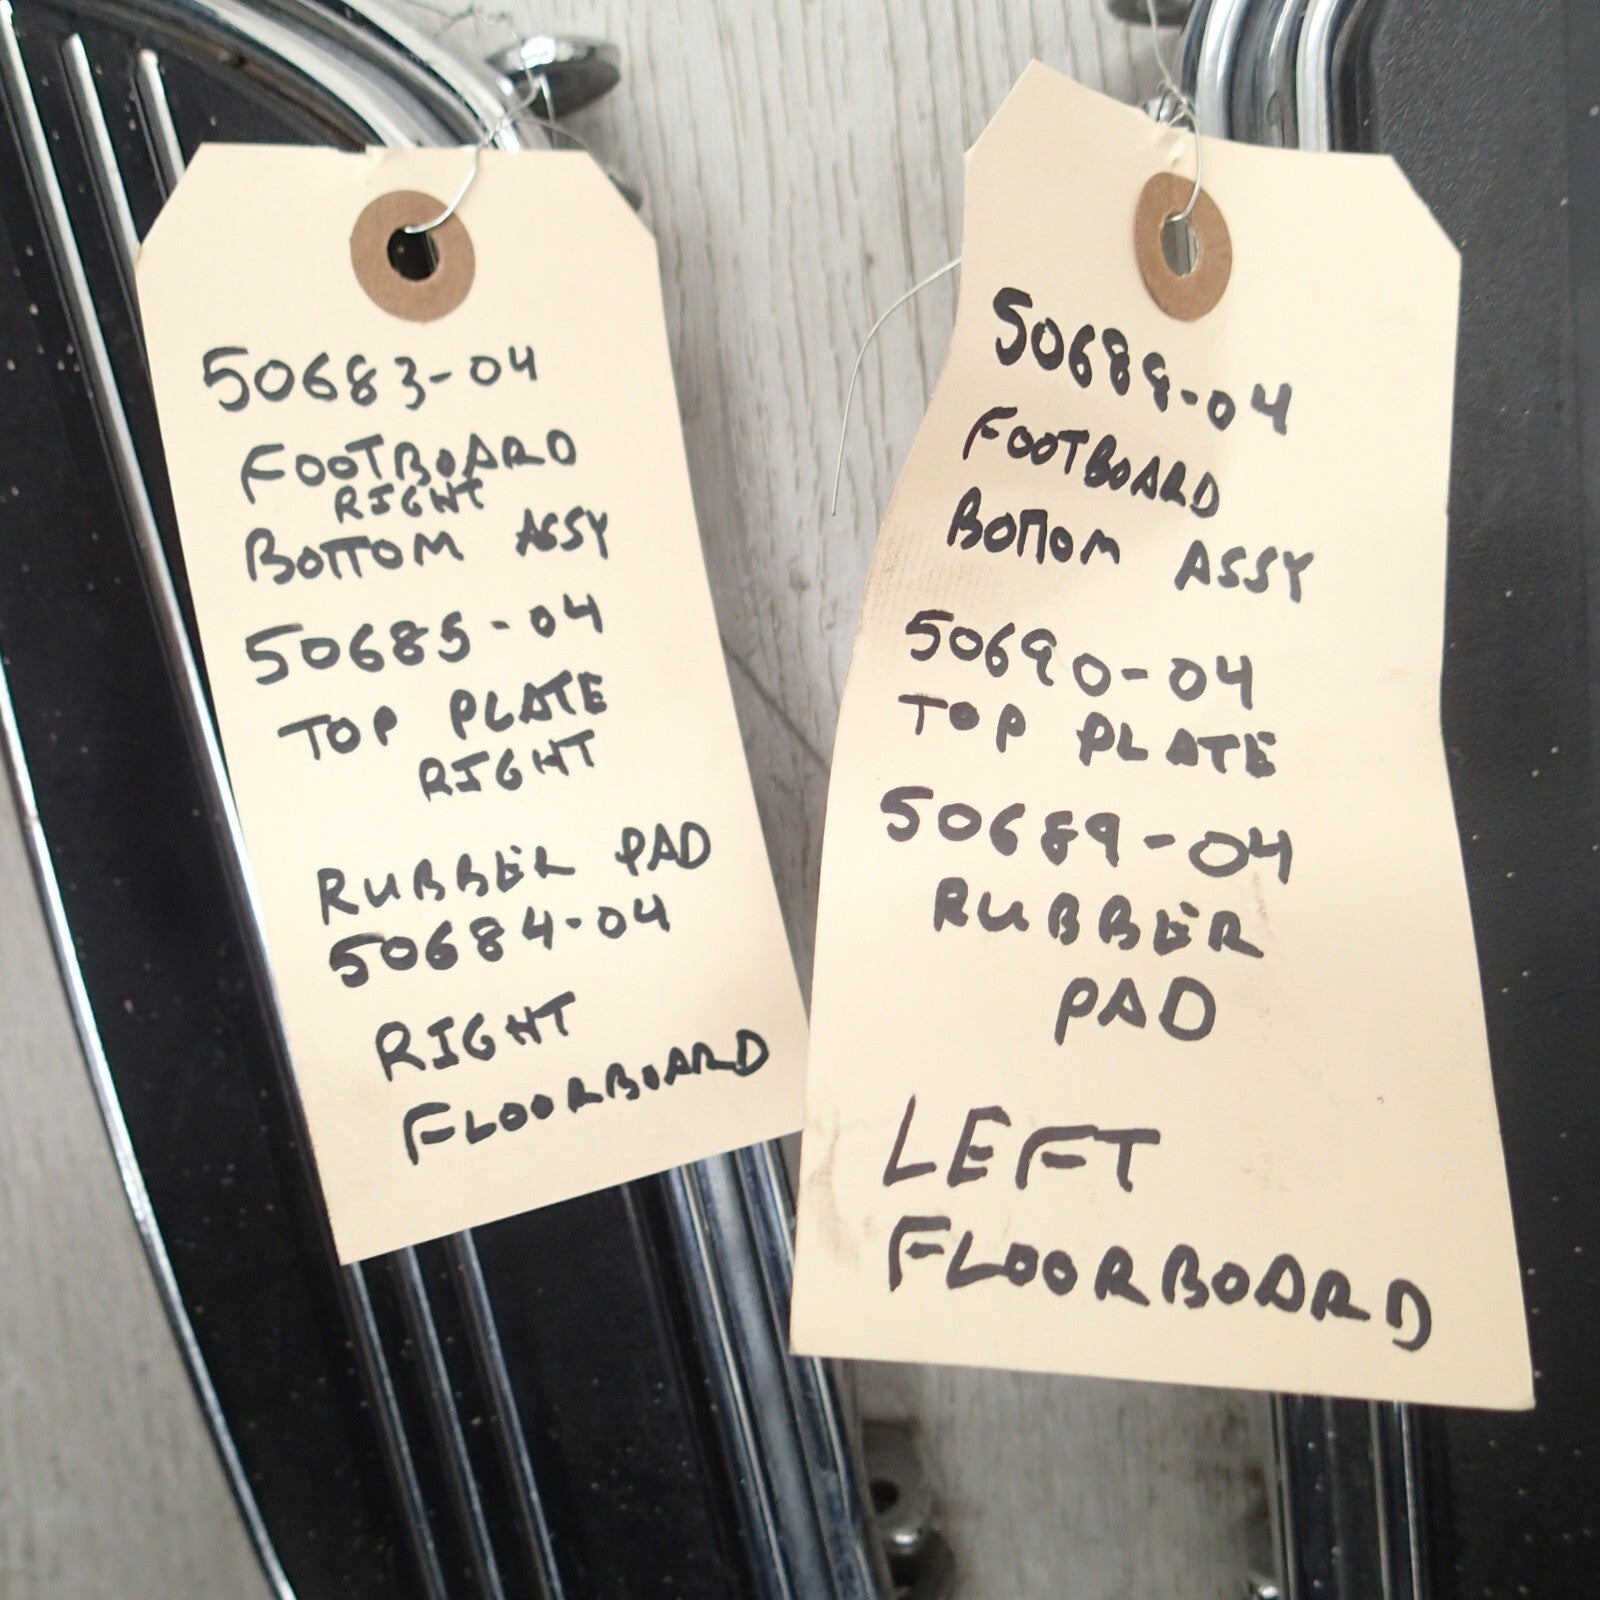 50683-04
FOOTBOARD
RIGHT
BOTTOM ASSY
50685-04
TOP PLATE
RIGHT
RUBBER PAD
50684-04
RIGHT
FLOORBOARD
50688-04
FOOTBOARD
BOTTOM ASSY
50690-04
TOP PLATE
50689-04
RUBBER
PAD
LEFT
FLOORBOARD